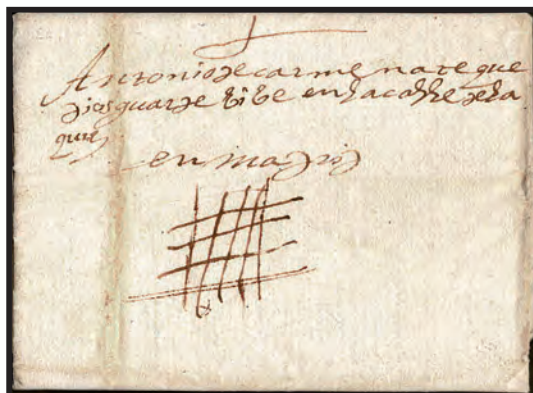 Antonio de carmenate que
dios guarde bibe en la calle de la
en madrid